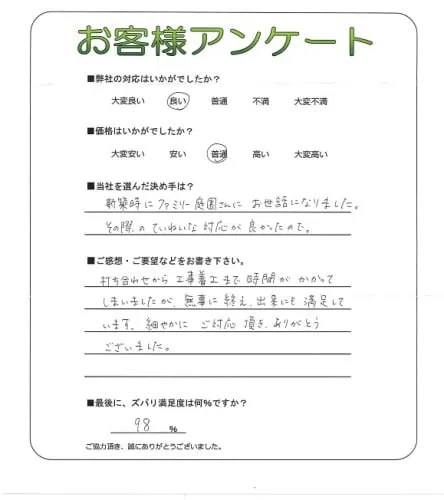 お客様アンケート
■弊社の対応はいかがでしたか？
大変良い 良い 普通 不満 大変不満
■価格はいかがでしたか？
大変安い 安い 普通 高い 大変高い
■当社を選んだ決め手は？
新築時にファミリー庭園さんに お世話になりました。
その際の ていねいな 対応が 良かったので。
■ご感想・ご要望などをお書き下さい。
打ち合わせから 工事着工まで 時間が かかって
しまいましたが、無事に 終え、出来にも 満足して
います。細やかに ご対応 頂き、ありがとう
ございました。
■最後に、ズバリ満足度は何％ですか？
98 ％
ご協力頂き、誠にありがとうございました。